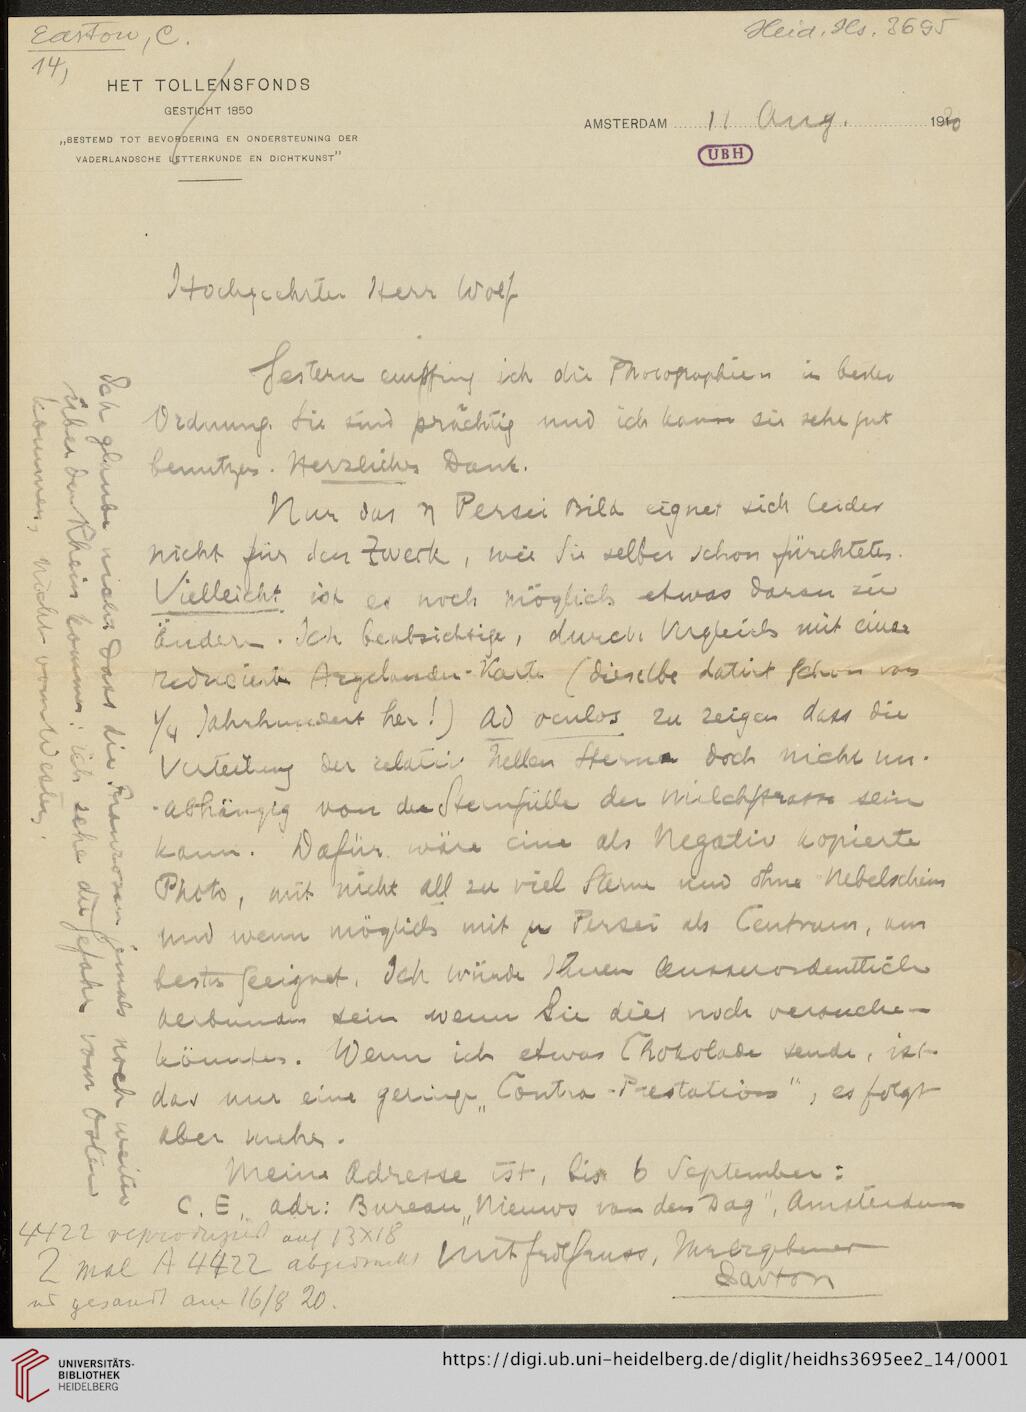 Easton, C.
Heid. Hs. 3695
14,
HET TOLLENSFONDS
GESTICHT 1850
„BESTEMD TOT BEVORDERING EN ONDERSTEUNING DER
VADERLANDSCHE LETTERKUNDE EN DICHTKUNST”
AMSTERDAM 11 Aug. 1920
UBH
Hochgeehrter Herr Wolf
Gestern empfing ich die Photographien in bester
Ordnung. Sie sind prächtig und ich kann sie sehr gut
benutzen. Herzlichen Dank.
Nur das η Persei Bild eignet sich leider
nicht für den Zweck, wie Sie selber schon fürchteten.
Vielleicht ist es noch möglich etwas daran zu
ändern. Ich beabsichtige, durch Vergleich mit einer
reduzierten Argelander-Karte (dieselbe datirt schon von
1/4 Jahrhundert her!) ad oculos zu zeigen dass die
Verteilung der relativ hellen Sterne doch nicht un-
-abhängig von der Sternfülle der Milchstrasse sein
kann. Dafür wäre eine als Negativ kopierte
Photo, mit nicht all zu viel Sterne und ohne Nebelschein
und wenn möglich mit η Persei als Centrum, am
besten geeignet. Ich würde Ihnen ausserordentlich
verbunden sein wenn Sie dies noch versuchen
könnten. Wenn ich etwas Chokolade sende, ist
das nur eine geringe „Contra-Prestation”, es folgt
aber mehr.
Meine Adresse ist, bis 6 September:
C. E. adr: Bureau „Nieuws van den Dag”, Amsterdam
Mit frdl Gruss, Ihr ergebener
Easton
Ich glaube nicht dass die Franzosen jemals noch weiter
über den Rhein kommen: ich sehe die Gefahr vom Osten
kommen, nicht vom Westen.
4422 reproduziert auf 13X18
2 mal A 4422 abgedruckt
u. gesandt am 16/8 20.
UNIVERSITÄTS-
BIBLIOTHEK
HEIDELBERG
https://digi.ub.uni-heidelberg.de/diglit/heidhs3695ee2_14/0001